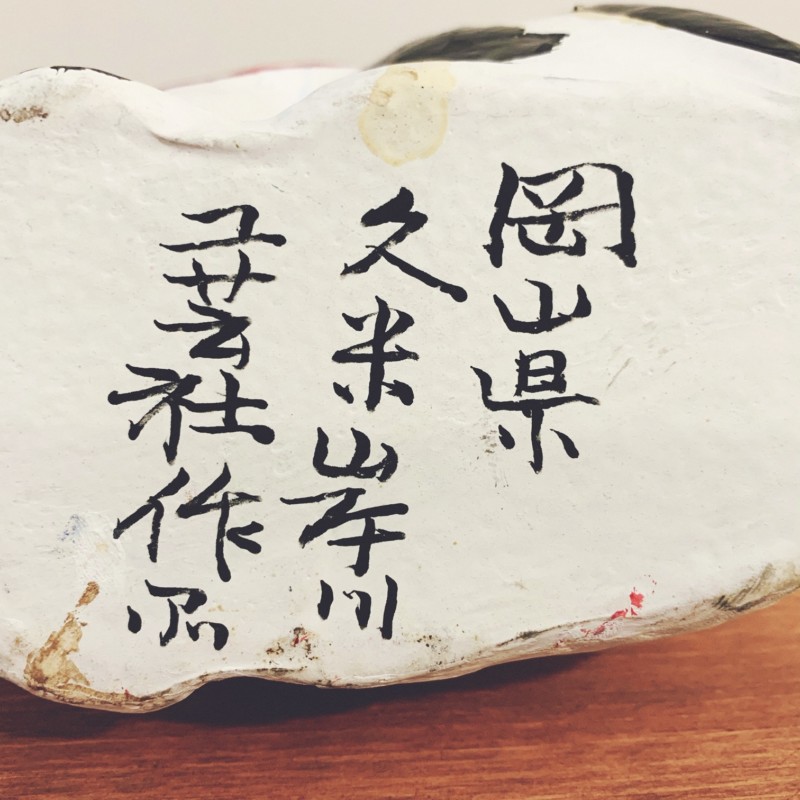 岡山県
久米岸川
工芸社作品